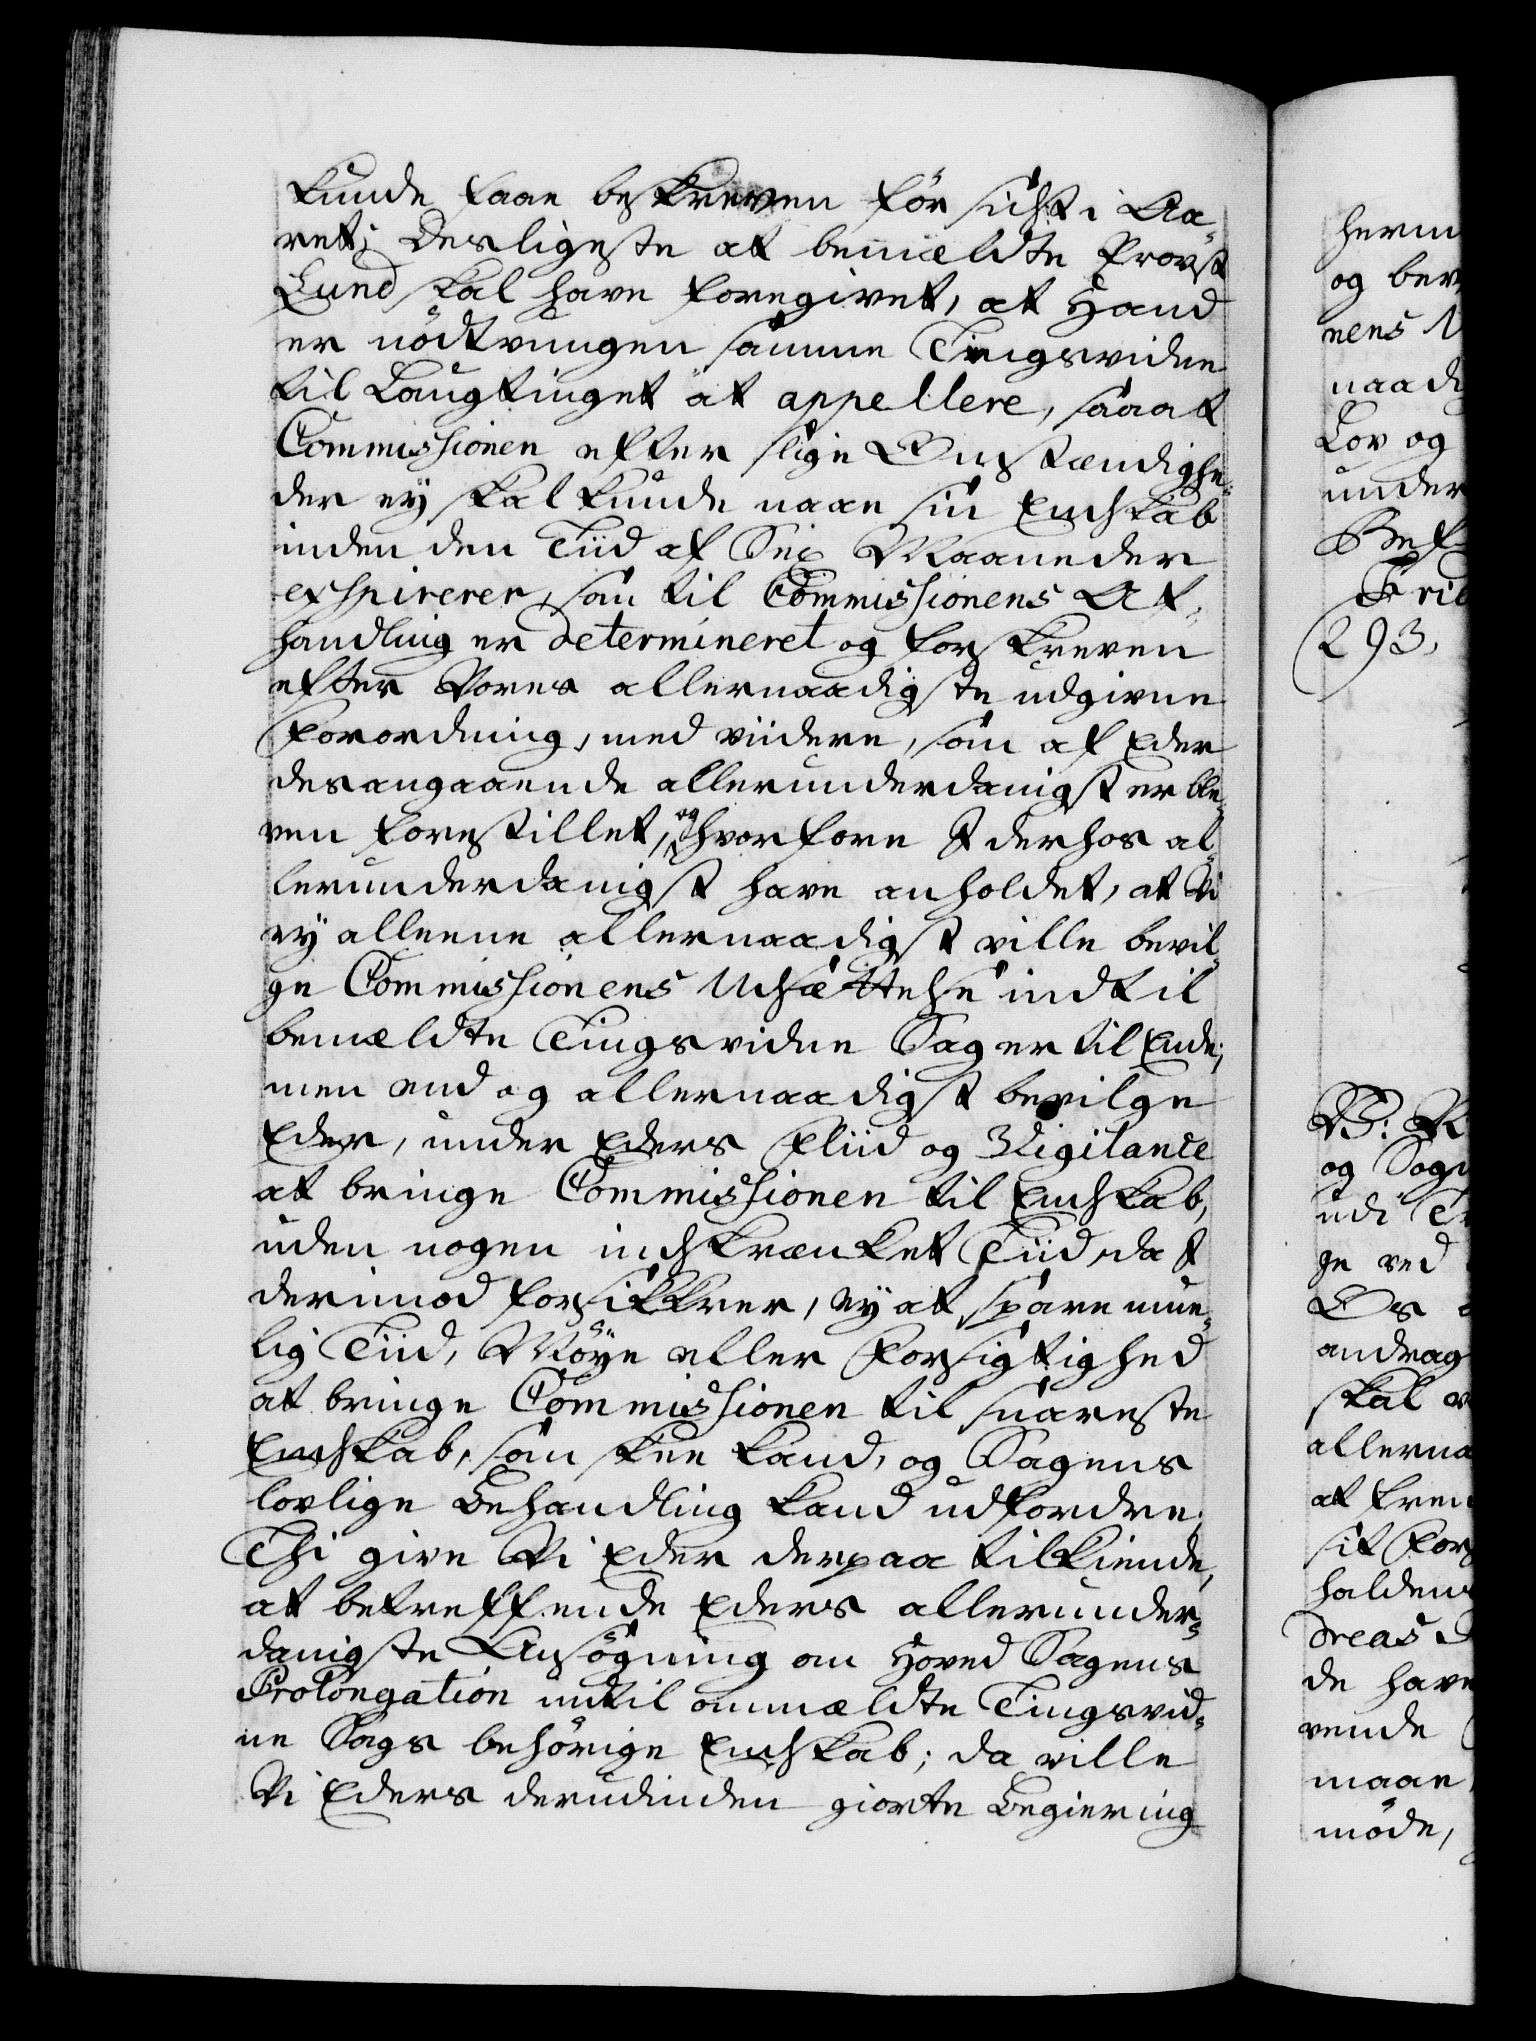 kunde faae beskreven før sidst i Aa-
ret; desligeste at bemældte Provst
Lund skal have foregivet, at Hand
er nødtvungen samme Tingsvidne
til Laugtinget at appellere, saa at
Commissionen efter slige Omstændighe-
der ey skal kunde naae sin Endskab
inden den Tiid af Sex Maaneder
exspirerer, som til Commissionens Af-
handling er determineret og forskreven
efter Vores allernaadigste udgivne
Forordning, med viidere, som af Eder
desangaaende allerunderdanigst er ble-
ven forestillet, og hvorfore I derhos al-
lerunderdanigst have anholdet, at Vi
ey alleene allernaadigst ville bevil-
ge Commissionens Udsættelse indtil
bemældte Tingsvidne Sag er til Ende;
men end og allernaadigst bevilge
Eder, under Eders Fliid og Vigilance
at bringe Commissionen til Endskab,
uden nogen indskrænket Tiid, da I
derimod forsikkrer, ey at spare mue-
lig Tiid, Møye eller Forsigtighed
at bringe Commissionen til snareste
Endskab, som skee kand, og Sagens
lovlige Behandling kand udfordre.
Thi give Vi Eder derpaa tilkiende,
at betreffende Eders allerunder-
danigste Ansøgning om Hoved Sagens
Prolongation indtil ommældte Tingsvid-
ne Sags behørige Endskab; da ville
Vi Eders derudinden giorte Begiering
herm
og bev
nens
naadi
Lov og
under
Bef
Frid
293,
og Sogn
udi Tr
ge ved
Os
andrag
skal
allerna
at frem
sit For
haldens
dreas
de have
vende
maae
møde,